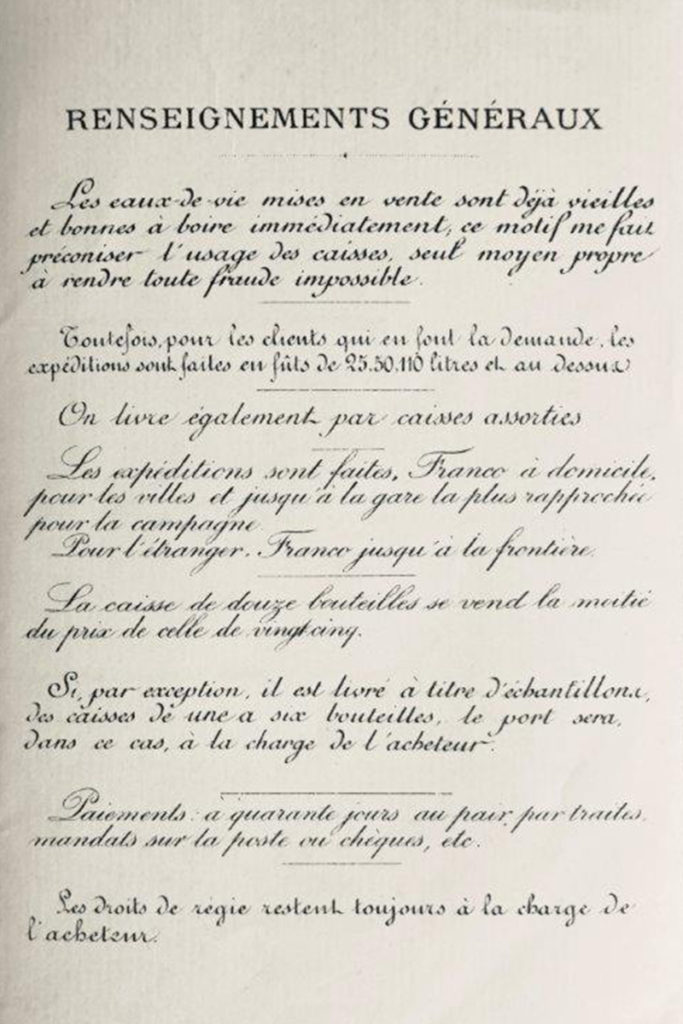 RENSEIGNEMENTS GÉNÉRAUX
Les eaux-de-vie mises en vente sont déjà vieilles
et bonnes à boire immédiatement, ce motif me fait
préconiser l'usage des caisses, seul moyen propre
à rendre toute fraude impossible.
Toutefois, pour les clients qui en font la demande, les
expéditions sont faites en fûts de 25.50.110 litres et au dessus
On livre également par caisses assorties
Les expéditions sont faites, Franco à domicile,
pour les villes et jusqu'à la gare la plus rapprochée
pour la campagne.
Pour l'étranger, Franco jusqu'à la frontière.
La caisse de douze bouteilles se vend la moitié
du prix de celle de vingt cinq.
Si, par exception, il est livré à titre d'échantillons,
des caisses de une a six bouteilles, le port sera,
dans ce cas, à la charge de l'acheteur.
Paiements: à quarante jours au pair, par traites,
mandats sur la poste ou chèques, etc.
Les droits de régie restent toujours à la charge de
l'acheteur.